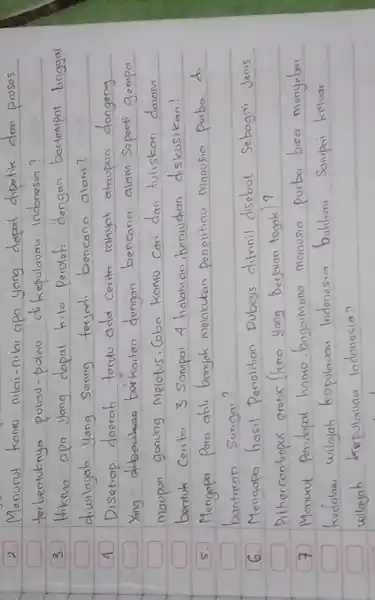 2 Menurut kamu nilai-nilai apa yang dapat dipetik dari proses
terbentuknya pulau-pulau di kepulauan Indonesia?
3 Hikmah apa yang dapat kita peroleh dengan bertempat tinggal
diwilayah yang sering terjadi bencana alam?
4 Disetiap daerah tentu ada cerita rakyat ataupun dongeng
Yang berkaitan dengan bencana alam seperti gempa
maupun gunung meletus. Coba kamu cari dan tuliskan dalam
bentuk cerita 3 sampai 4 halaman, kemudian diskusikan!
5. Mengapa para ahli banyak melakukan penelitian manusia purba di
bantaran Sungai?
6 Mengapa hasil Penelitian Dubois ditrinil disebut Sebagai Jenis
Pithecantropus erectus (kera yang berjalan tegak)?
7. Menurut Pendapat kamu bagaimana manusia purba bisa menyebar
kedalam wilayah kepulauan Indonesia bahkan Sampai keluar
wilayah kepulauan Indonesia?